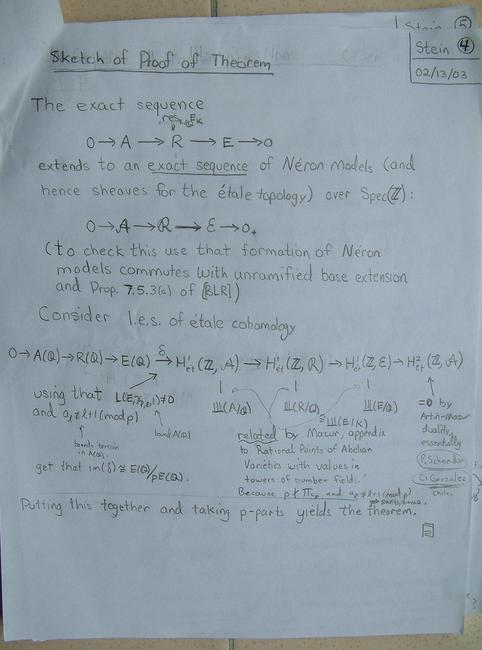 Stein ⑤
Stein ④
02/13/03
Sketch of Proof of Theorem
The exact sequence
0→A→R→E→0
extends to an exact sequence of Néron Models (and
hence sheaves for the étale topology) over Spec(ℤ):
0→𝒜→ℛ→ℰ→0.
(to check this use that formation of Néron
models commutes with unramified base extension
and Prop. 7.5.3(a) of [BLR])
Consider l.e.s. of étale cohomology
0→A(ℚ)→R(ℚ)→E(ℚ) δ→ H¹ét(ℤ,𝒜)→H¹ét(ℤ,ℛ)→H¹ét(ℤ,ℰ)→H²ét(ℤ,𝒜)
Ш(A/ℚ) Ш(R/ℚ) Ш(E/ℚ)
≅Ш(E/K)
using that
and aℓ≢ℓ+1(mod p)
bounds torsion
in A(ℚ).
bound A(ℚ)
get that im(δ)≅E(ℚ)/pE(ℚ).
related by Mazur, appendix
to Rational Points of Abelian
Varieties with values in
towers of number fields."
Because p∤∏cp and aℓ≢ℓ+1(mod p)
=0 by
Artin-Mazur
duality,
essentially
Putting this together and taking p-parts yields the theorem.